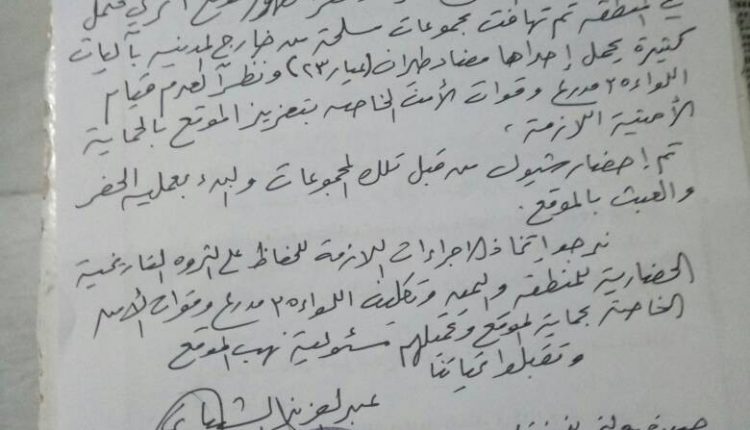 في المنطقه تم تهافت مجموعات مسلحة من خارج المدينه بآليات
كثيرة يحمل إحداها مضاد طيران (عيار ٢٣) ونظراً لعدم قيام
اللواء ٣٥ مدرع وقوات الأمن الخاصه بتعزيز الموقع بالحماية
الأمنية اللازمة،
تم إحضار شيول من قبل تلك المجموعات والبدء بعملية الحفر
والعبث بالموقع.
نرجو اتخاذ الاجراءات اللازمة للحفاظ على الثروه التاريخية
الحضارية للمنطقه واليمن وتكليف اللواء ٣٥ مدرع وقوات الأمن
الخاصة بحماية الموقع وتحميلهم مسئولية نهب الموقع
وتقبلوا تحياتنا
عبدالعزيز